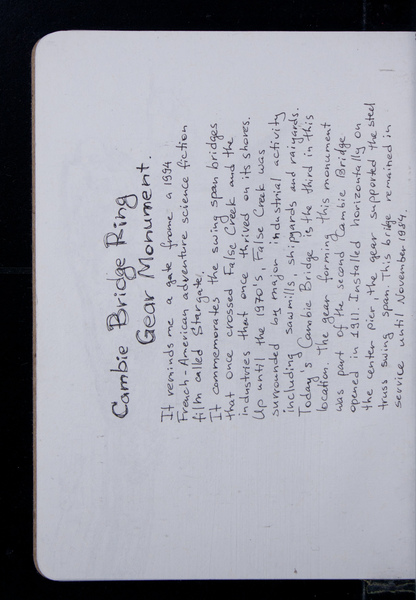 Cambie Bridge Ring
Gear Monument.
It reminds me a gate frome a 1994
French-American adventure science fiction
film called Stargate.
It commemorates the swing span bridges
that once crossed False Creek and the
industries that once thrived on its shores.
Up until the 1970's, False Creek was
surrounded by major industrial activity
including sawmills shipyards and raiyards.
Today's Cambie Bridge is the third in this
location. The gear forming this monument
was part of the second Cambie Bridge
opened in 1911. Installed horizontally on
the center pier, the gear supported the steel
truss swing span. This bridge remained in
service until November 1984.